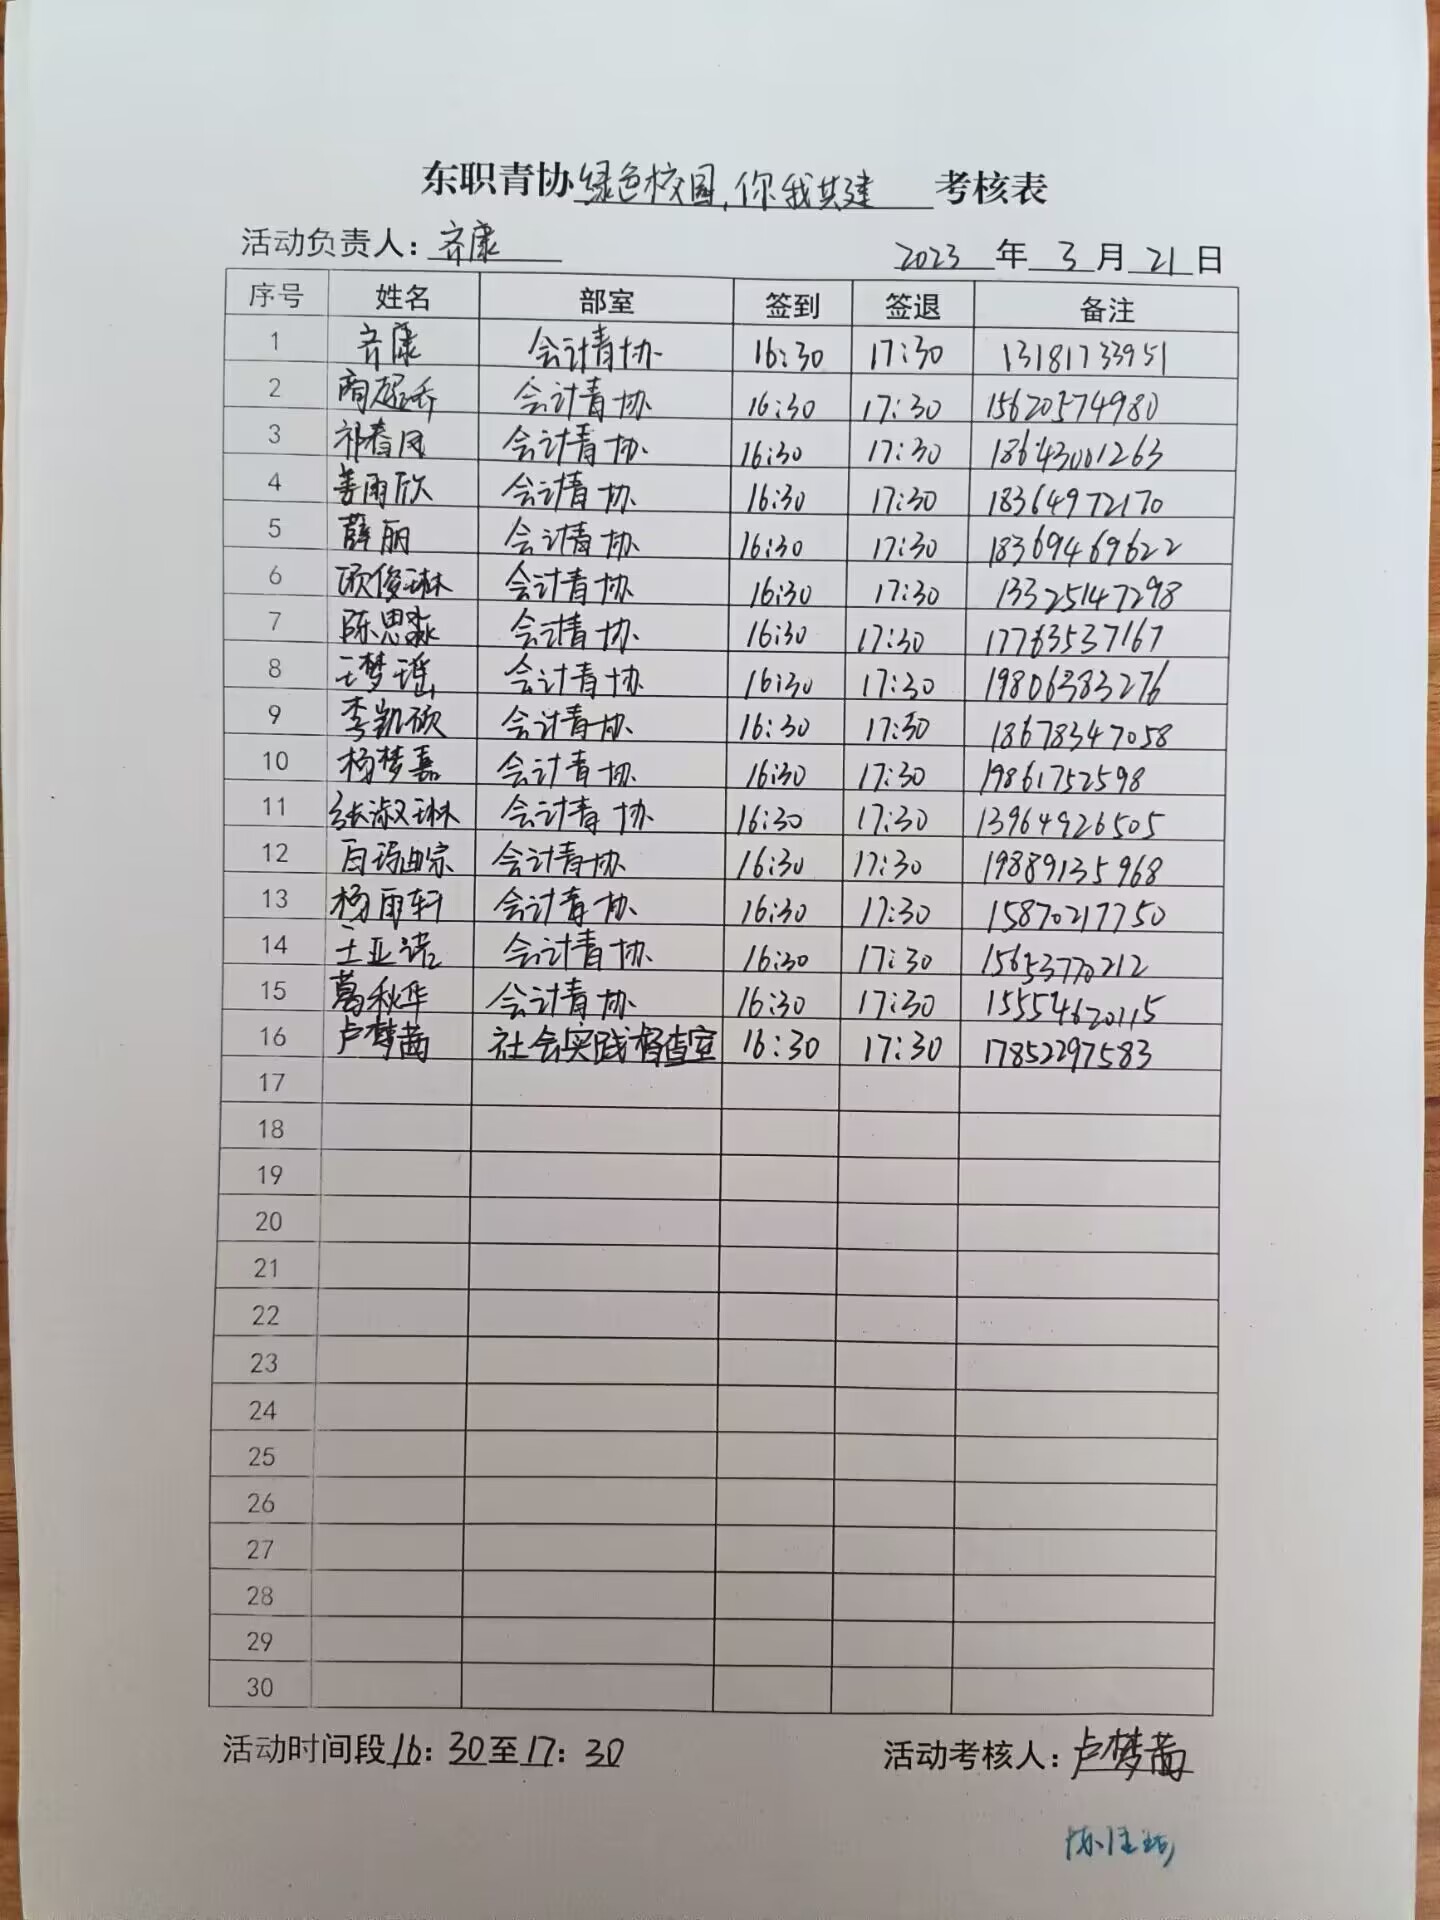 东职青协绿色校园,你我共建 考核表
活动负责人: 齐康 2023年3月21日
序号 姓名 部室 签到 签退 备注
1 齐康 会计青协 16:30 17:30 13181733951
2 会计青协 16:30 17:30 15620574980
3 祁春凤 会计青协 16:30 17:30 18643001263
4 姜雨欣 会计青协 16:30 17:30 18364972170
5 薛丽 会计青协 16:30 17:30 18369469622
6 顾俊琳 会计青协 16:30 17:30 13325147298
7 陈思淼 会计青协 16:30 17:30 17763537167
8 王梦瑶 会计青协 16:30 17:30 19806383276
9 李凯硕 会计青协 16:30 17:30 18678347058
10 杨梦嘉 会计青协 16:30 17:30 19861752598
11 张淑琳 会计青协 16:30 17:30 13964926505
12 白玛曲宗 会计青协 16:30 17:30 19889135968
13 杨雨轩 会计青协 16:30 17:30 15870217750
14 王亚诺 会计青协 16:30 17:30 15653770212
15 葛秋华 会计青协 16:30 17:30 15554620115
16 卢梦茜 社会实践督查室 16:30 17:30 17852297583
17
18
19
20
21
22
23
24
25
26
27
28
29
30
活动时间段16:30至17:30 活动考核人:卢梦茜